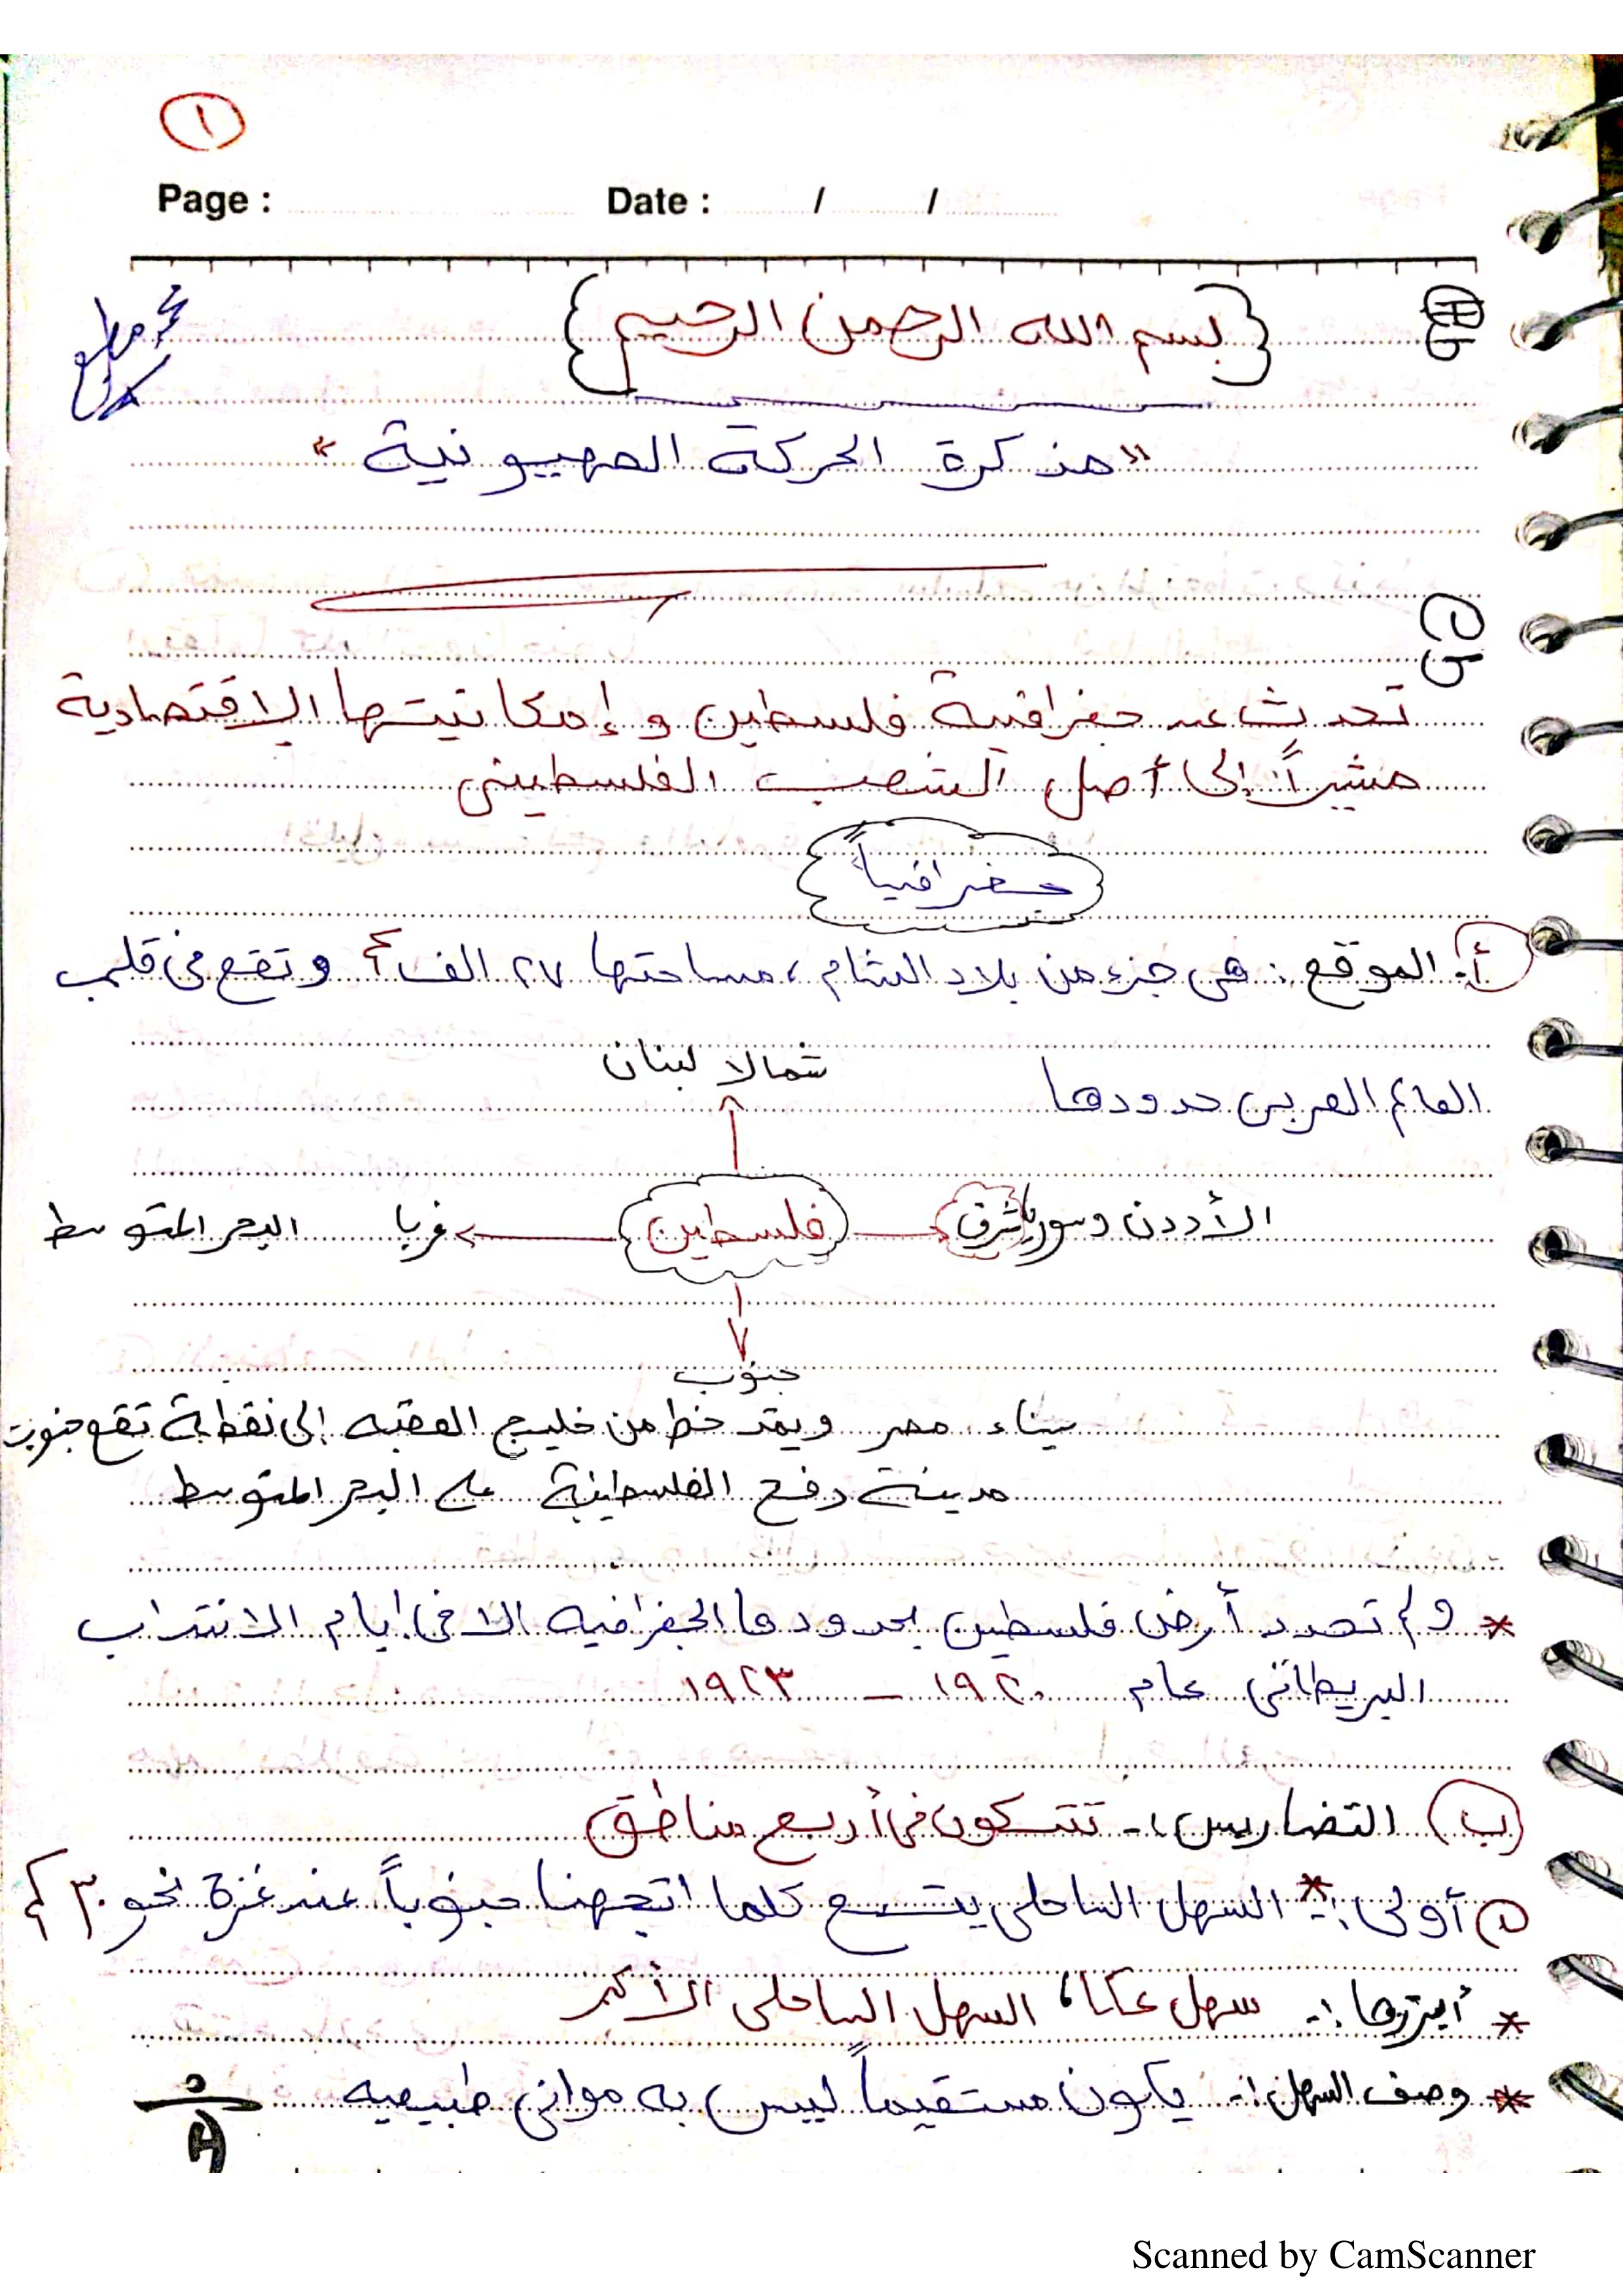 ١
Page : Date : / /
{بسم الله الرحمن الرحيم}
"مذكرة الحركة الصهيونية"
س١
تحدث عن جغرافية فلسطين و إمكانيتها الاقتصادية
مشيراً إلى أصل الشعب الفلسطيني
جغرافياً
أ- الموقع : هي جزء من بلاد الشام ، مساحتها ٢٧ الف كم٢ و تقع في قلب
العالم العربي حدودها
شمالا لبنان
الأردن وسوريا شرق فلسطين غربا البحر المتوسط
جنوب
سيناء مصر ويمتد خط من خليج العقبه إلى نقطة تقع جنوب
مدينة رفح الفلسطينية على البحر المتوسط
* ولم تحدد أرض فلسطين بحدودها الجغرافيه الا في ايام الانتداب
البريطاني عام ١٩٢٠ - ١٩٢٣
(ب) التضاريس :- تتكون في أربع مناطق
١ أولى :- * السهل الساحلي يتسع كلما اتجهنا جنوباً عند غزة نحو ٣٠ كم
* أبرزها :- سهل عكا ، السهل الساحلي الأكبر
* وصف السهل :- يكون مستقيماً ليس به مواني طبيعيه
Scanned by CamScanner